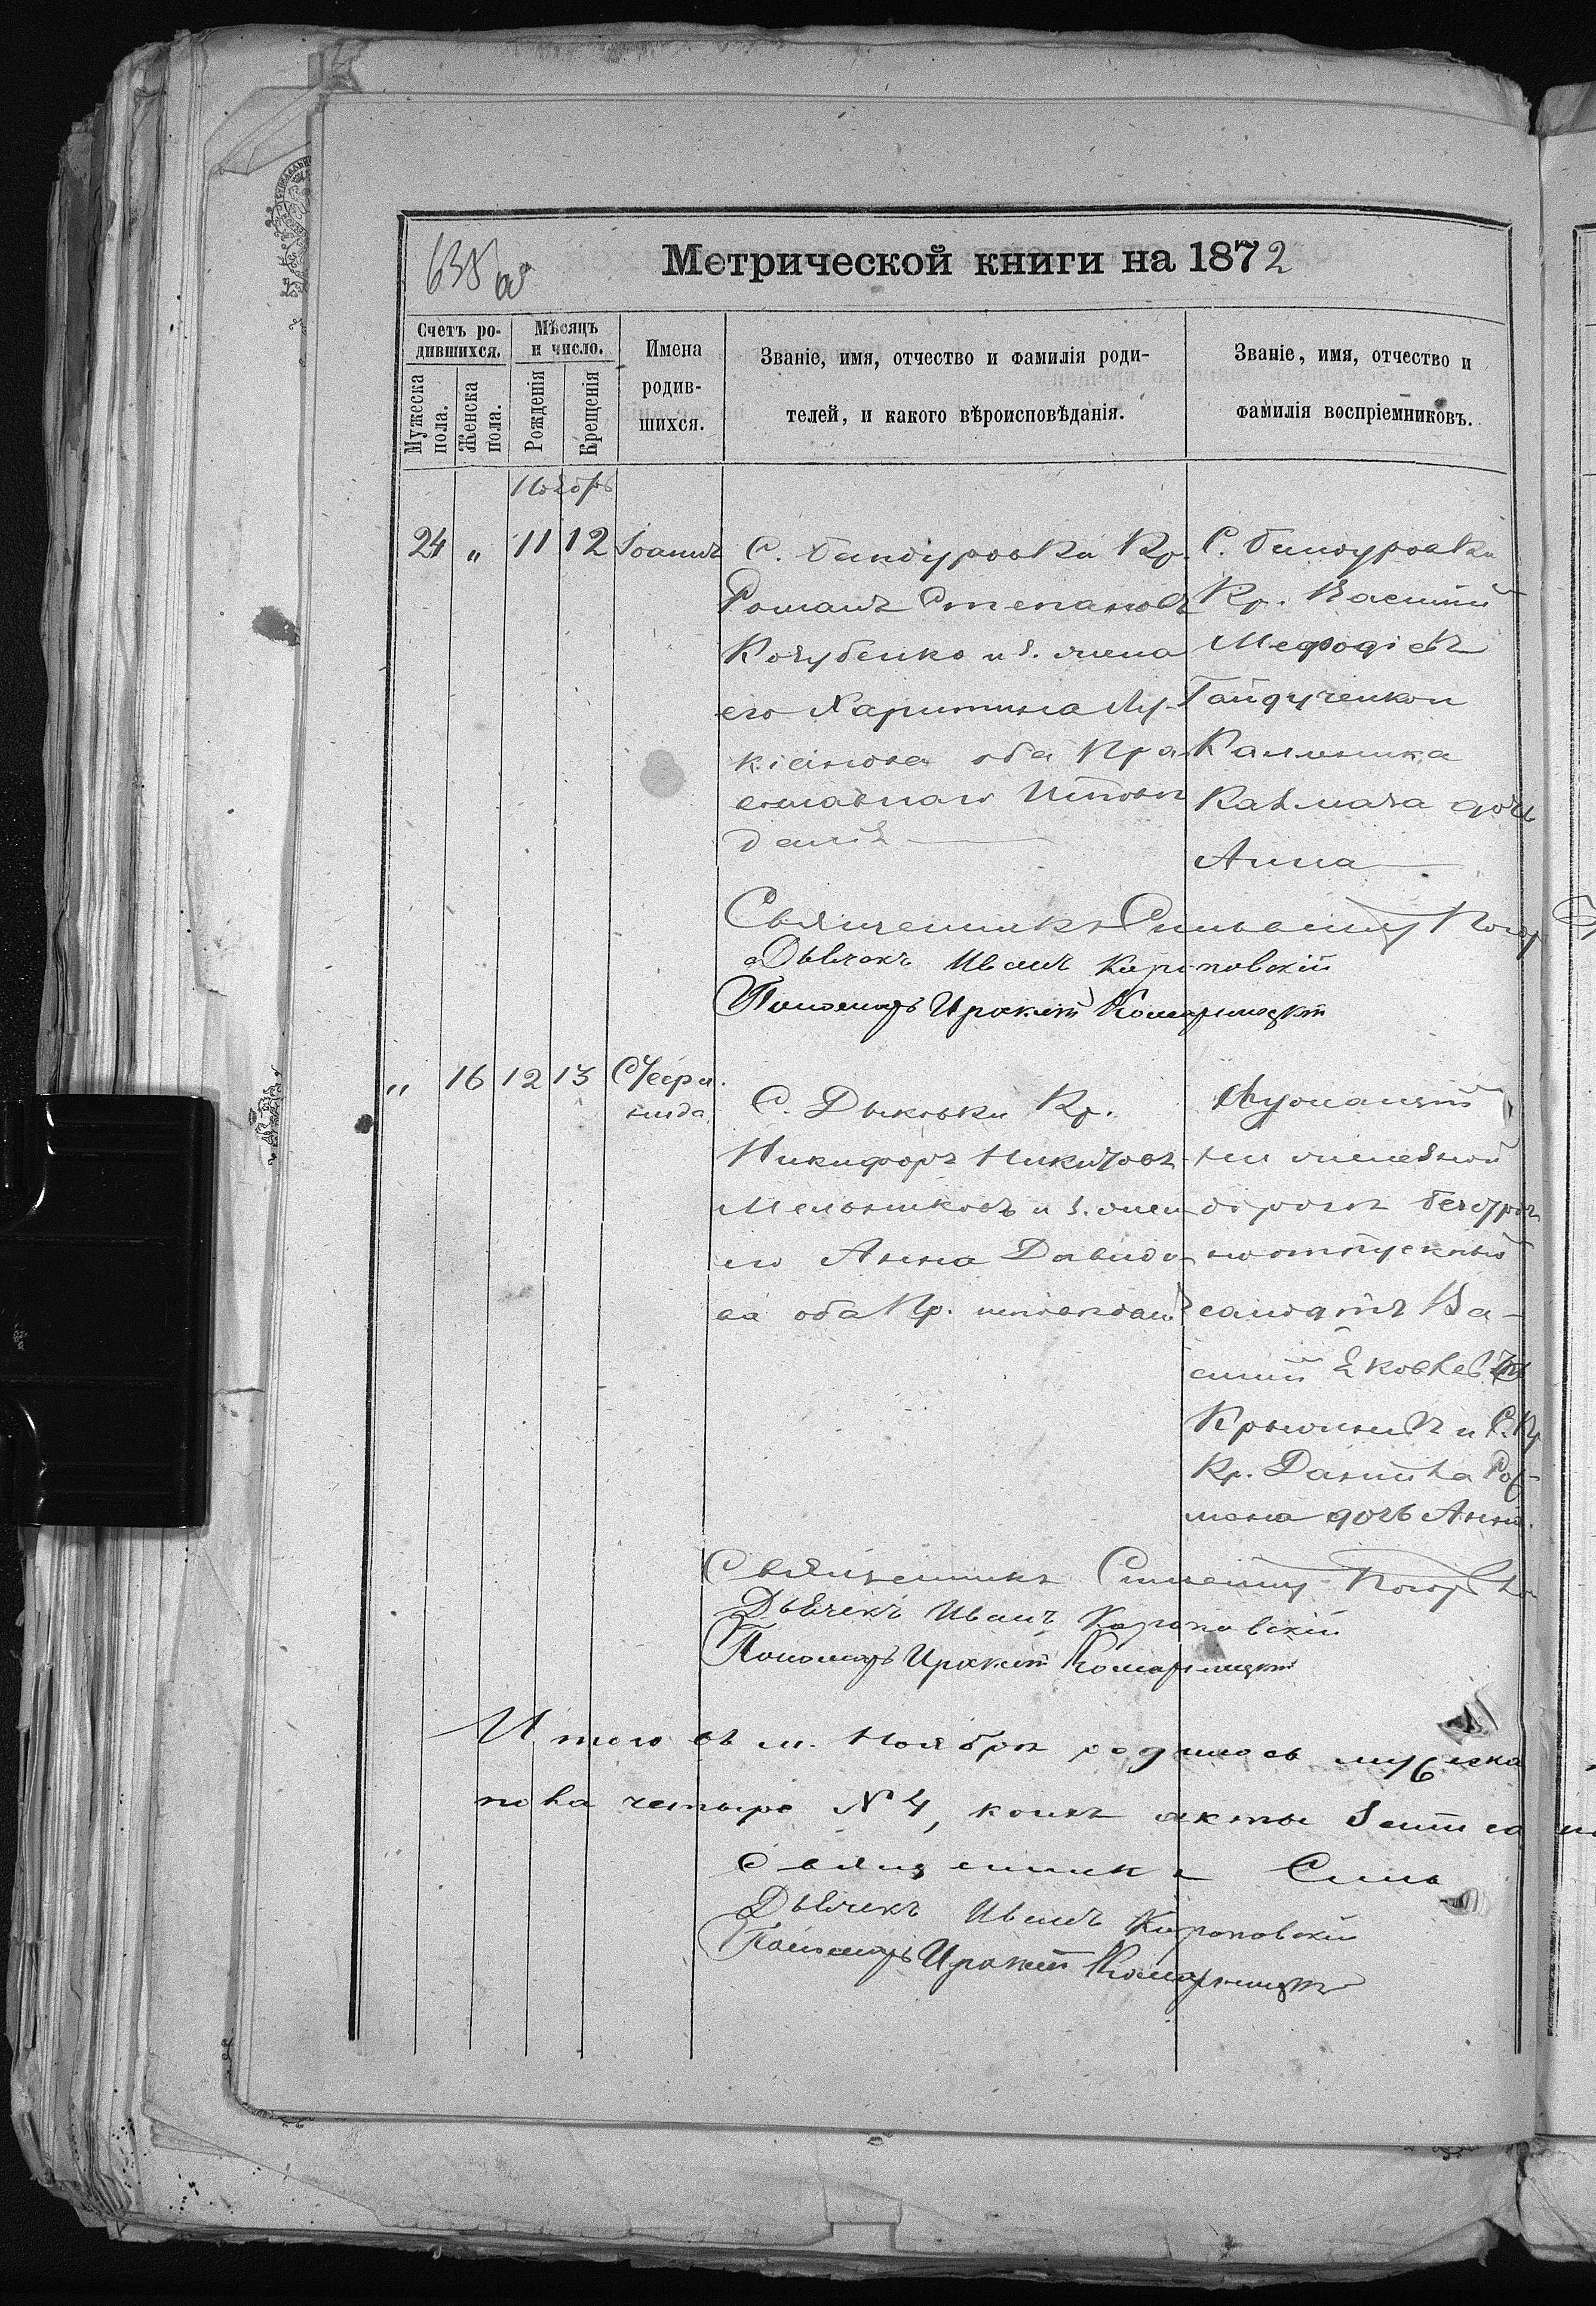 635 об
Метрической книги на 1872
Счетъ ро-
дившихся.
Мѣсяцъ
и число.
Мужеска
пола.
Женска
пола.
Рожденія
Крещенія
Имена
родив-
шихся.
Званіе, имя, отчество и фамилія роди-
телей, и какого вѣроисповѣданія.
Званіе, имя, отчество и
фамилія воспріемниковъ.
Ноябрь
24 „ 11 12 Іоаннъ
С. Бандуровки Кр.
Романъ Степановъ
Кочубенко и з. жена
его Харитина Лу-
кіанова оба Пра
вославнаго Испов
данія
С. Бандуровки
Кр. Василій
Мефодіевъ
Гайдученко и
Каллиника
дочь
Анна
Священникъ Сильвестръ
Дьячекъ Иванъ Короповскій
Пономарь Ираклій Комарницкій
„ 16 12 13
С. Дыковки Кр.
Никифоръ Никитовъ
Мельниковъ и з. жен
его Анна Давидо
ва оба Пр. исповѣдані
ной желѣзной
дороги безсроч
но отпускной
солдатъ Ва-
силій Яковлевъ
и С.
Кр. Даниила
дочь Анна.
Священникъ Сильвестръ
Дьячекъ Иванъ Короповскій
Пономарь Ираклій Комарницкій
Итого въ м. Ноябрѣ родилось мужеска
пола четыре № 4, коихъ акты
Священникъ Силь
Дьячекъ Иванъ Короповскій
Пономарь Ираклій Комарницкій